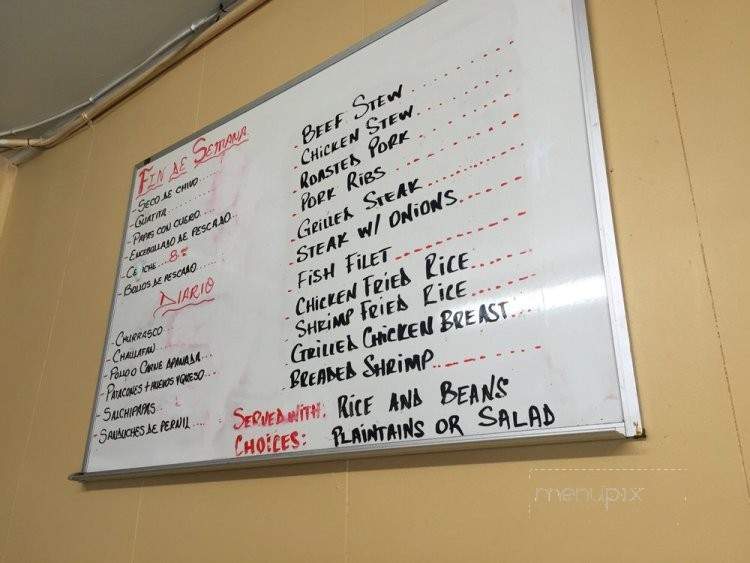 FIN DE SEMANA
- SECO DE CHIVO.....
- GUATITA.........
- PAPAS CON CUERO....
- ENCEBOLLADO DE PESCADO..
- CE ICHE....8.00
- BOLLOS DE PESCADO......
DIARIO
- CHURRASCO...
- CHAULAFAN...
- POLLO O CARNE APANADA..
- PATACONES + HUEVOS Y QUESO...
- SALCHIPAPAS...
- SANDUCHES DE PERNIL....
- BEEF STEW............
- CHICKEN STEW............
- ROASTED PORK............
- PORK RIBS............
- GRILLED STEAK............
- STEAK W/ ONIONS........
- FISH FILET............
- CHICKEN FRIED RICE......
- SHRIMP FRIED RICE........
- GRILLED CHICKEN BREAST...
- BREADED SHRIMP............
SERVED WITH: RICE AND BEANS
CHOICES: PLAINTAINS OR SALAD
menupix